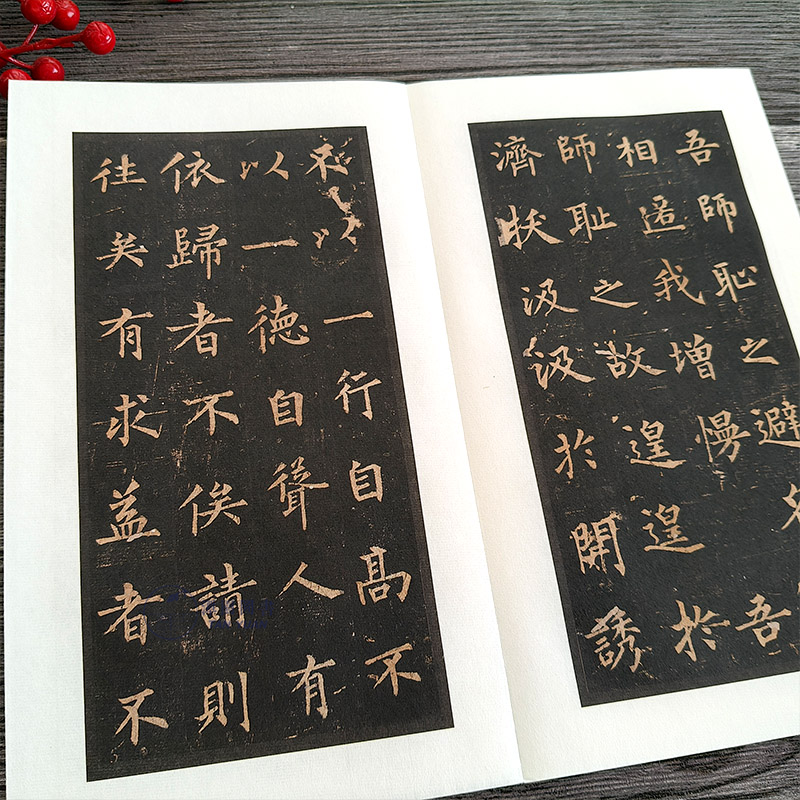 吾師恥之避名
相匿我增慢吾
師耻之故遑遑於
濟拔汲汲於開誘
不以一行自高不
以一德自聳人有
依歸者不俟請則
往矣有求益者不